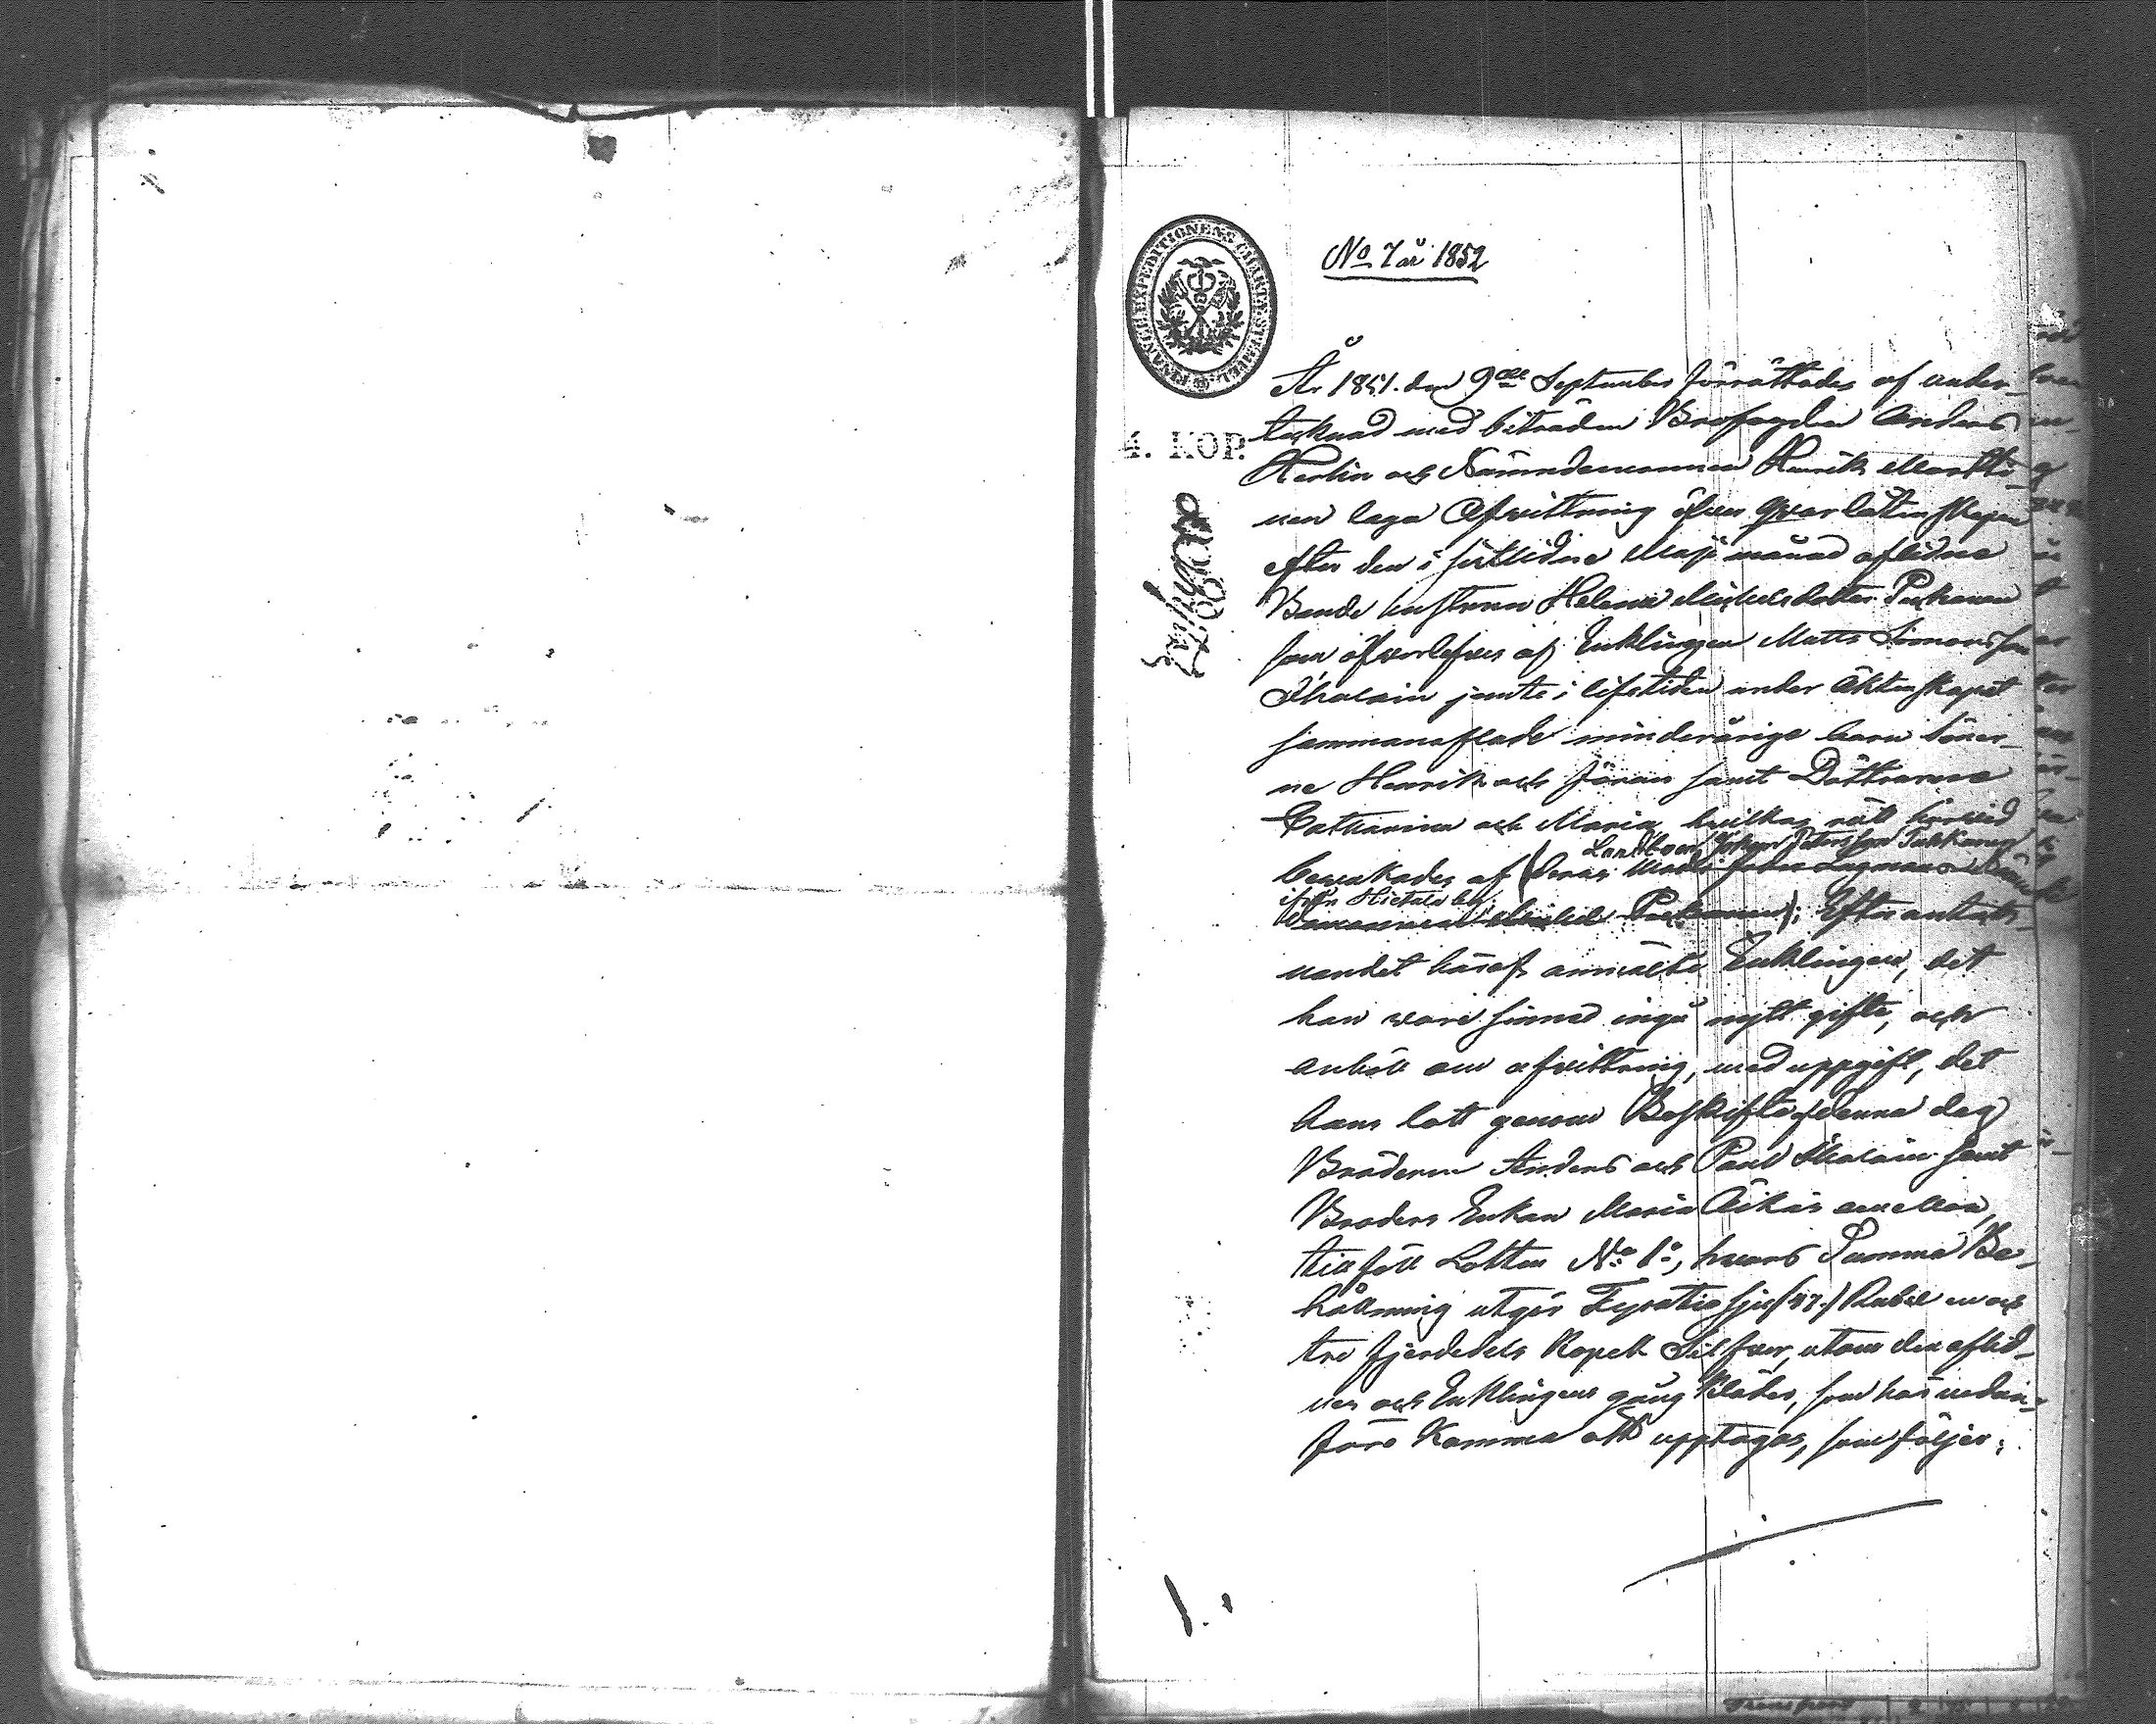 FINANCE EXPEDITIONENS CHARTÆ STEMPEL
No 7 år 1852
4. KOP.
År 1851. den 9de September förrättades af under-
tecknad med biträden Brofogden Anders
Herlin och Nämndemannen Henrik Martti-
nen laga Afvittring öfver qvarlåtenskapen
efter den i sistlidne Maji månad aflidna
Bonde hustrun Helena Michelsdotter
som öfverlefves af Enklingen Matts Simonsson
Ihalain jemte i lifstiden under Äktenskapet
sammanaflade minderårige barn Söner-
ne Henrik och Jöran samt Döttrarne
Catharina och Maria, hvilkas rätt härvid
Landbon Johan Petersson Tukkanen
bevakades af (deras
ifrån Hietala by
); Efter anteck-
nandet häraf anmälte Enklingen, det
han vore sinnad ingå nytt gifte, och
anhöll om afvittring, med uppgift, det
hans lott genom Boskifte denna dag
Bröderne Anders och Paul Ihalain samt
Broders Enkan Maria emellan,
tillföll Lotten No 1o, hvars Summa Be-
hållning utgör Fyratio sju (47.) Rubel en och
tre fjerdedels Kopek Silfver, utom den aflid-
nes och Enklingens gång Kläder, som här nedan-
före komma att upptagas, som följer:
1.
Transport